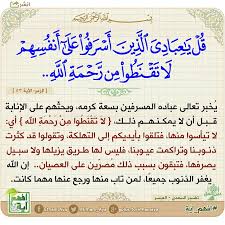 انشر
بسم الله الرحمن الرحيم
قُلْ يَا عِبَادِيَ الَّذِينَ أَسْرَفُوا عَلَىٰ أَنفُسِهِمْ
لَا تَقْنَطُوا مِن رَّحْمَةِ اللَّهِ ..
[الزمر: الآية ٥٣]
يُخبر تعالى عباده المسرفين بسعة كرمه، ويحثهم على الإنابة
قبل أن لا يمكنهم ذلك. { لا تَقْنَطُوا مِنْ رَحْمَةِ اللَّهِ } أي:
لا تيأسوا منها، فتلقوا بأيديكم إلى التهلكة، وتقولوا قد كثرت
ذنوبنا وتراكمت عيوبنا، فليس لها طريق يزيلها ولا سبيل
يصرفها، فتبقون بسبب ذلك مصرين على العصيان .. إن الله
يغفر الذنوب جميعا، لمن تاب منها ورجع عنها مهما كانت.
#أفهم_آية